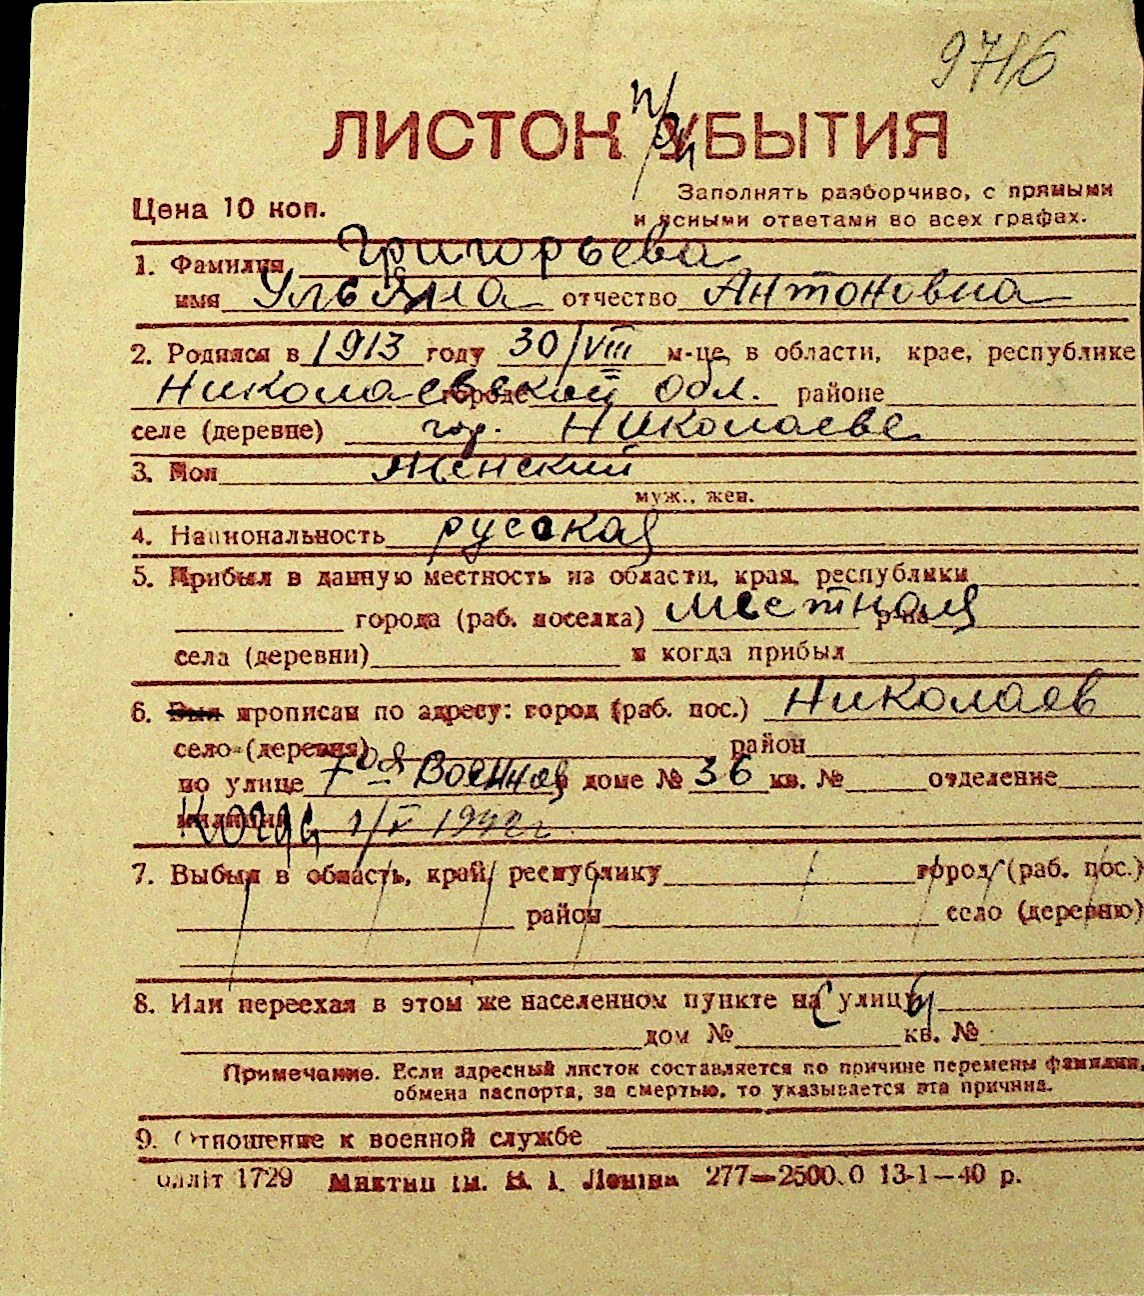 9716
ЛИСТОК УБЫТИЯ
Цена 10 коп.
Заполнять разборчиво, с прямыми
и ясными ответами во всех графах.
1. Фамилия Григорьева
имя Ульяна отчество Антоновна
2. Родился в 1913 году 30/VIII м-це, в области, крае, республике
Николаевской обл. городе районе
селе (деревне) гор. Николаеве
3. Пол женский
муж., жен.
4. Национальность русская
5. Прибыл в данную местность из области, края, республики
города (раб. поселка) местная р-на
села (деревни) и когда прибыл
6. Был прописан по адресу: город (раб. пос.) Николаев
село (деревня) район
по улице 7ая Военная доме № 36 кв. № отделение
милиции Когда 1/V 1942 г
7. Выбыл в область, край, республику город (раб. пос.)
район село (деревню)
8. Или переехал в этом же населенном пункте на улицу
дом № кв. №
Примечание. Если адресный листок составляется по причине перемены фамилии,
обмена паспорта, за смертью, то указывается эта причина.
9. Отношение к военной службе
1729 ім. В. І. Леніна 277—2500.0 13-1—40 р.